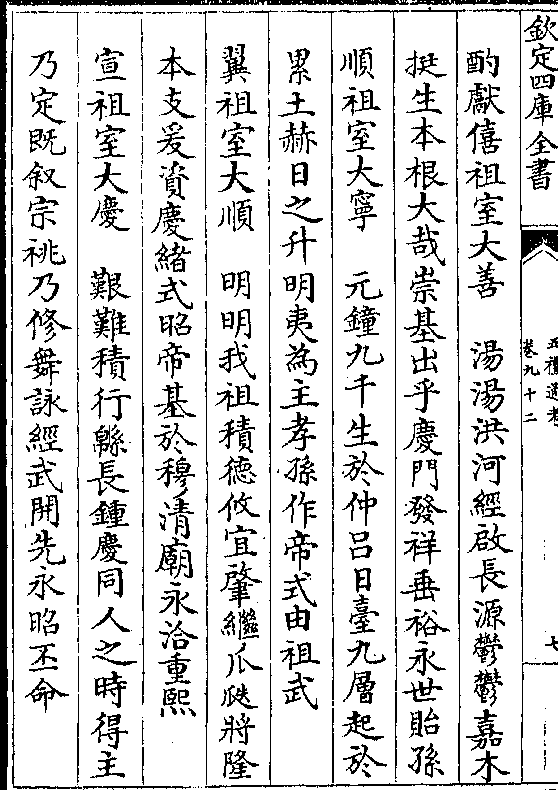 欽定四庫全書
五禮通考
卷九十二
七
酌獻僖祖室大善　湯湯洪河經啟長源鬱鬱嘉木
挺生本根大哉崇基出乎慶門發祥垂裕永世貽孫
順祖室大寧　元鐘九千生於仲呂日臺九層起於
累土赫日之升明夷為主孝孫作帝式由祖武
翼祖室大順　明明我祖積德攸宜肇繼瓜瓞將隆
本支爰資慶緒式昭帝基於穆清廟永洽重熙
宣祖室大慶　艱難積行緜長鍾慶同人之時得主
乃定既叙宗祧乃修舞詠經武開先永昭丕命